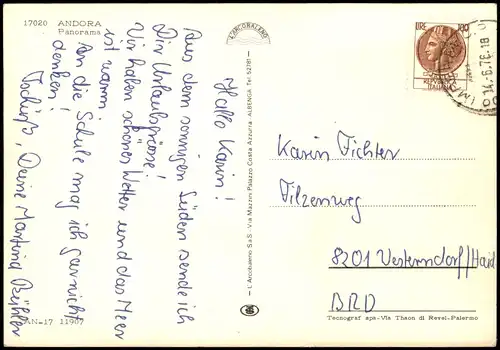 17020 ANDORA
Panorama
L'ARCOBALENO
Hallo Karin!
Aus dem sonnigen Süden sende ich
Dir Urlaubsgrüsse!
Wir haben schönes Wetter und das Meer
ist warm.
An die Schule mag ich gar nicht
denken!
Tschüß, Deine Martina Bühler
AN-17 11967
L'Arcobaleno S.a.S. - Via Mazzini Palazzo Costa Azzurra - ALBENGA - Tel. 52781
LIRE 100
REPUBBLICA
ITALIANA
14.6.76.18
Karin Fichter
Filzenweg
8201 Westerndorf/Haid
BRD
Tecnograf spa - Via Thaon di Revel - Palermo